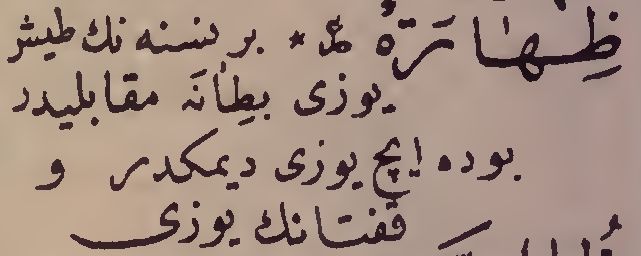 ظِهَارَةٌ * بر نسنه نك طيش
يوزى بِطَانَه مقابليدر
بوده ايچ يوزى ديمكدر و
قفتانك يوزى